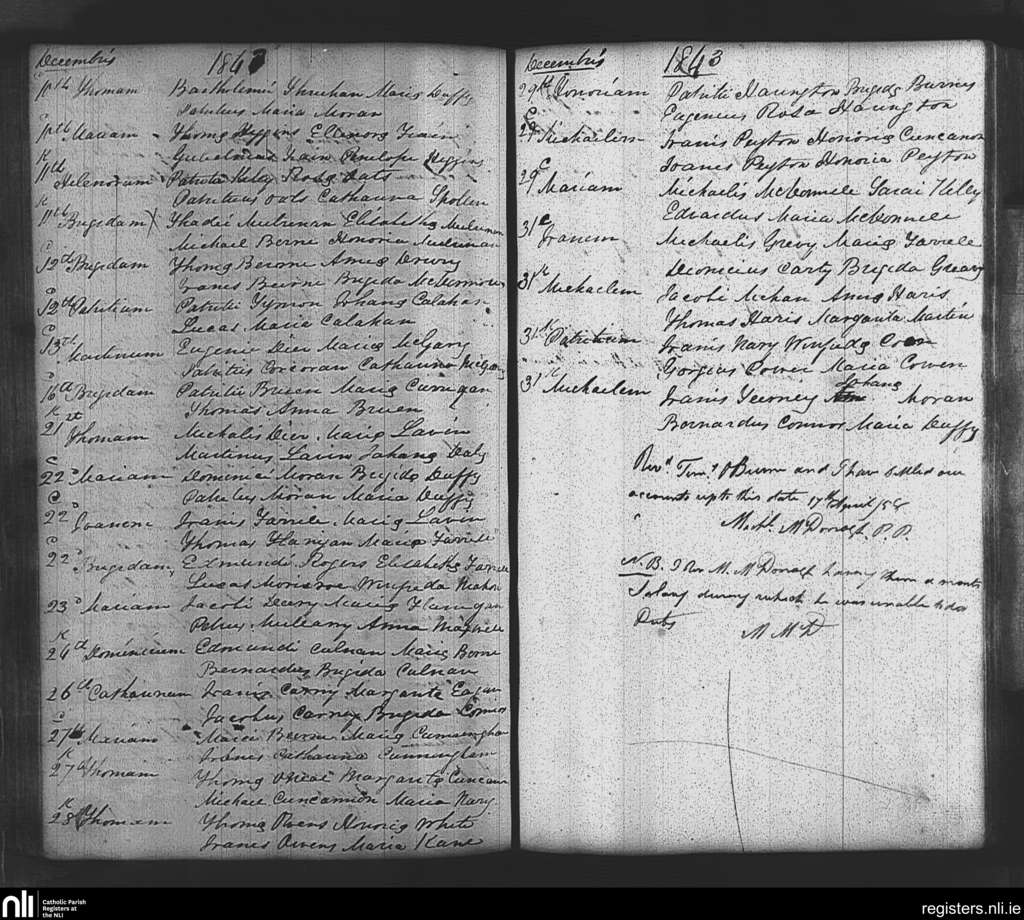 Decembris 1843
11th Thomam Bartholemei Shruhan Maria Duffy
Patritus Maria Moran
C
11th Mariam Thoma Higgins Ellenora Frain
K
Gulielmus Frain Penelope Higgins
11th Helenorum Patritii Kelly Rosa Oats
K
Patritius Oats Catharina Skollin
11th Brigidam X Thadei Mulrenan Elizabetha Mulrenan
C
Michael Berne Honoria Mulrenan
12th Brigidam Thoma Beirne Anna Drury
C
Joanes Beirne Brigida McDermott
12th Patritium Patritii Tymon Johana Calahan
C
Lucas Maria Calahan
13th Martinum Eugenii Dier Maria McGary
Patritus Corcoran Catharina McGary
16 Brigidam Patritii Bruen Maria Corrigan
K
Thomas Anna Bruen
21st Thomam Michalis Dier Maria Lavin
C
Martinus Lavin Johana Daly
22 Mariam Dominici Moran Brigida Duffy
C
Patritus Moran Maria Duffy
22 Joanem Joanis Farrele Maria Lavin
C
Thomas Flanigan Maria Farrele
22 Brigidam Edmundi Rogers Elizabetha Farrele
Lucas Morisroe Winfreda Mahon
23 Mariam Jacobi Deary Maria Flanigan
K
Petrus Muleany Anna Maxwell
24th Dominicum Edmundi Culnan Maria Borne
Bernardus Brigida Culnan
26th Catharinam Joanis Carny Margarita Eagan
C
Jacobus Carney Brigida Connor
27th Mariam Maria Beirne Maria Cunningham
K
Joanes Catharina Cunningham
27 Thomam Thoma Margarita Cuncanon
K
Michael Cuncannon Maria Nary
28 Thomam Thoma Owens Honoria White
Joanes Owens Maria Kane
Decembris 1843
29th Honoriam Patritii Harington Brigida Burnes
C
Eugenius Rosa Harington
29 Michaelem Joanis Peyton Honoria Cuncanon
C
Joanes Peyton Honoria Peyton
29 Mariam Michaelis McDonnele Sarai Kelly
Edvardus Maria McDonnele
31 C Joanem Michaelis Grevy Maria Farrele
Dionicius Carty Brigida Greavy
31 K Michaelem Jacobi Mehan Anna Haris
Thomas Haris Margarita Martin
31 K Patritium Joanis Nary Winfreda Coen
Gorgius Cowen Maria Cowen
Johana
31 K Michaelem Joanis Teerney Ann Moran
Bernardus Connor Maria Duffy
Revd. Timy. O'Beirne and I have settled our
accounts upto this date 17th April /58
Mathl. McDonagh P.P.
N.B. I Rev M. McDonagh having them a month
Jalong during which he was unable to do
Duty
M McD
nli
Catholic Parish
Registers at
the NLI
registers.nli.ie